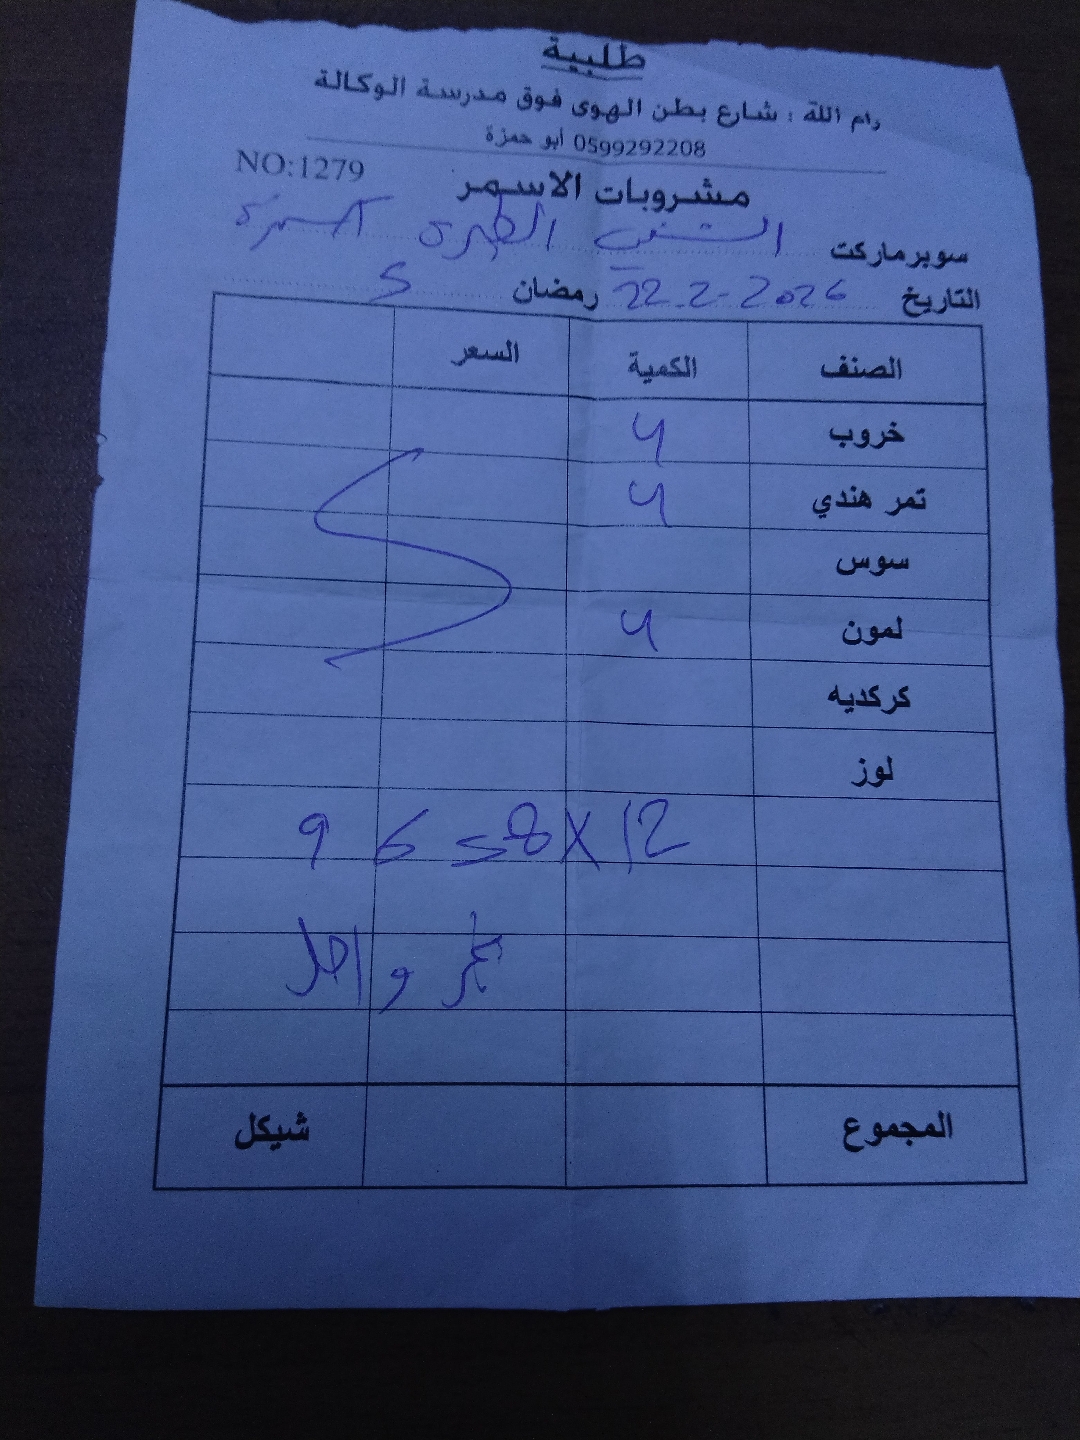 طلبية
رام الله : شارع بطن الهوى فوق مدرسة الوكالة
0599292208 أبو حمزة
NO:1279
مشروبات الاسمر
سوبرماركت
التاريخ 22-2-2026 رمضان 5
الصنف الكمية السعر
خروب 4
تمر هندي 4
سوس
لمون 4
كركديه
لوز
12 X 8 = 96
واحد
المجموع شيكل